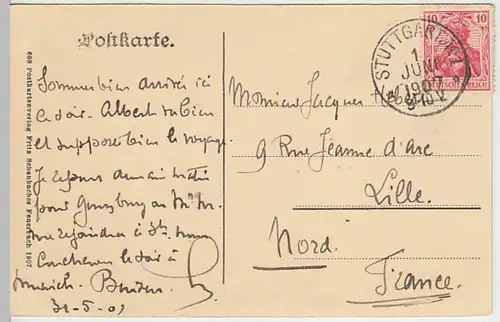 Postkarte.
10 10
DEUTSCHES REICH
STUTTGART
1
JUNI
1907
9-10 V.
608 Postkartenverlag Fritz Schumacher Feuerbach 1907
Sommes bien arrivés ici
ce soir. Albert va bien
et supporte bien le voyage.
Je repars demain matin
pour
me rejoindra à
coucherons le soir à
Munich.
31-5-07
Monsieur Jacques
9 Rue Jeanne d'arc
Lille.
Nord.
France.